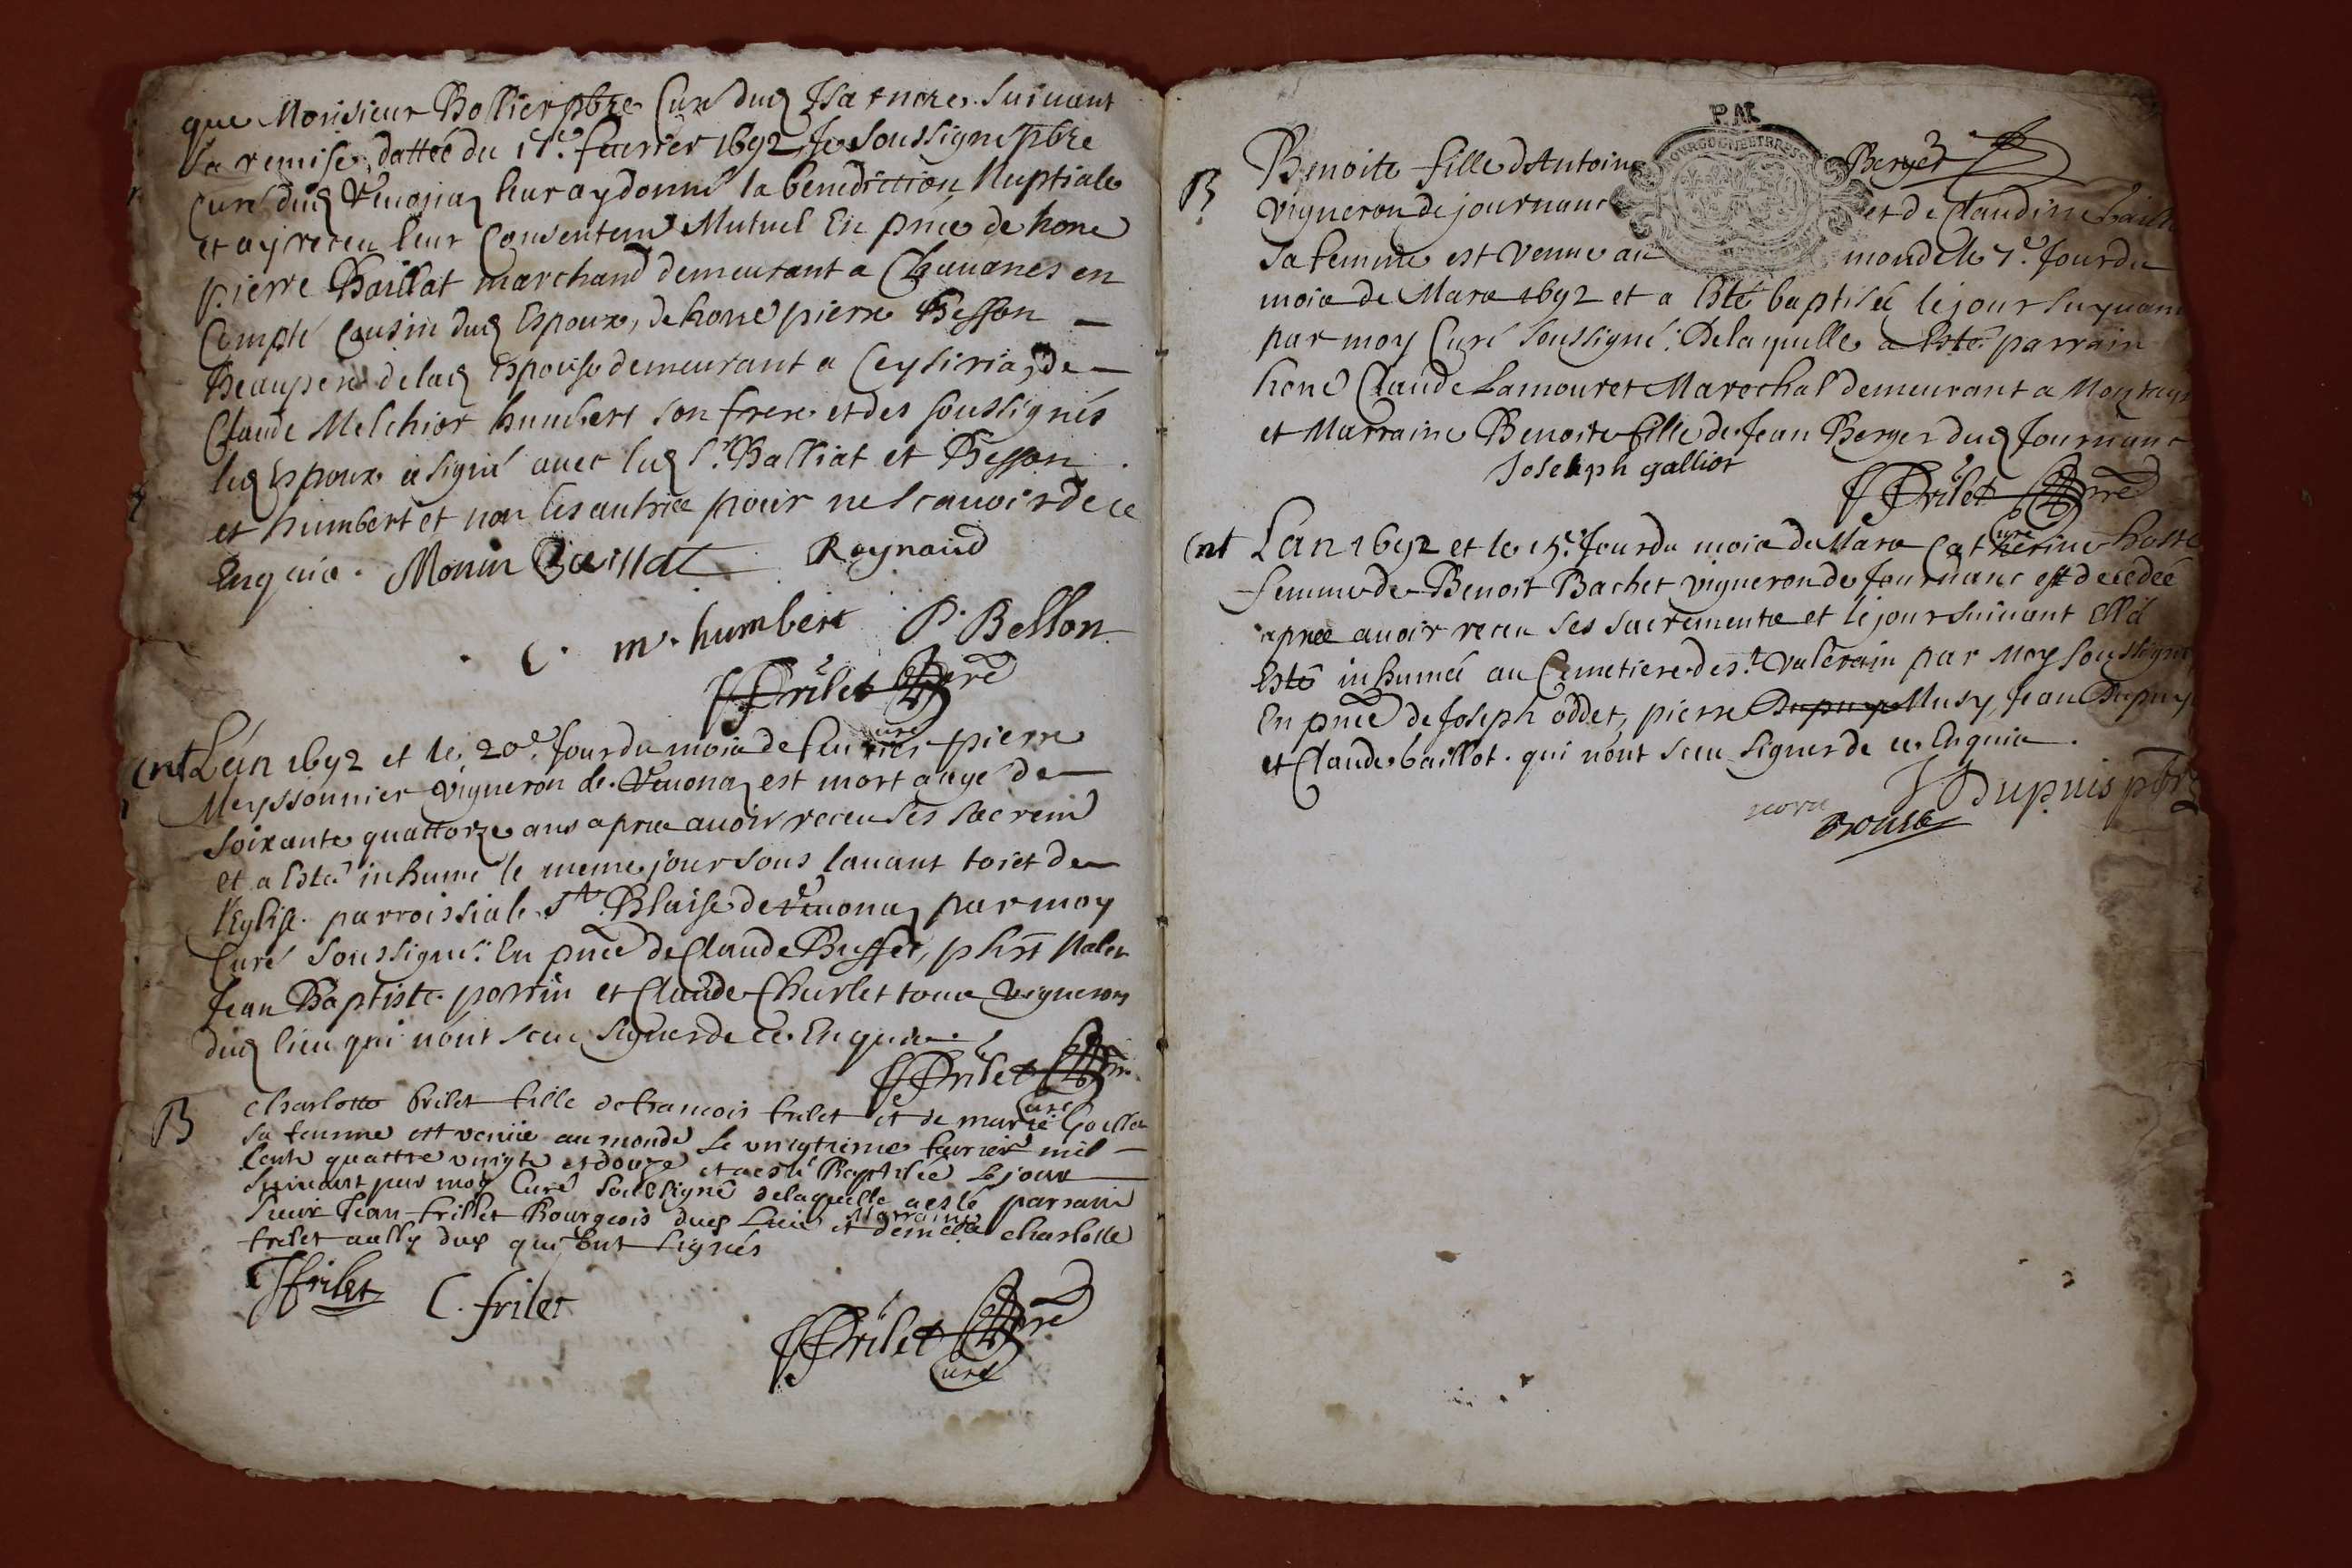 que Monsieur Bollier pbre Curé dud Jsarnore suivant
la remise dattée du feurier 1692 Je soussigné pbre
Curé dud leur ay donné la benediction Nuptiale
et ay receu leur Consentem Mutuel En pnce de hone
pierre Baillat marchand demeurant a Chauanes en
Compte Cousin dud Espoux, de hone pierre Besson
Beaupere delad Espouse demeurant a Ceysiria, de
Claude Melchior humbert son frere et des soussignés
led Espoux a signé auec led Sr Balliat et Besson
et humbert et non les autres pour ne scauoir de ce
Enquis. Monin Baillat Reynaud
C. m. humbert P. Besson
Frilet pre
Curé
Ent Lán 1692 et le 20e Jour du mois de feurier pierre
Meyssonnier vigneron de est mort agé de
soixante quattorze ans apres auoir receu ses sacrem
et a Esté inhumé le meme jour sous lauant toict de
lEglise parroissiale St Blaise de par moy
Curé soussigné: En pnce de Claude Buffet,
Jean Baptiste perrin et Claude Churlet tous vignerons
dud lieu qui nónt sceu signer de ce Enquis.
Frilet pre
Curé
B Charlotte frilet fille de francois frilet et de marie
sa femme est venüe au monde le feurier mil
cents quattre vingts et douze et a esté Baptisée le jour
suiuant par moy Curé Soussigné delaquelle a esté parrain
sieur Jean frillet Bourgeois dud Lieu et Marraine demlle charlotte
frilet aussy dud qui ont signés
Jfrilet C. frilet
Frilet pre
Curé
PAR
BOURGOGNE ET BRESSE
B Benoite fille dAntoine Berger
vigneron de journanc et de Claudine
sa femme est venue au monde le 7e Jour du
mois de Mars 1692 et a Esté baptisée le jour suyuant
par moy Curé soussigné: Delaquelle a Esté parrain
hone Claude Lamouret Marechal demeurant a
et Marraine Benoite fille de Jean Berger dud Journanc
Joseph galliot
Frilet pre
Curé
Ent Lan 1692 et le 15e Jour du mois de Mars Catherine
femme de Benoit Bachet vigneron de Journanc est decedée
apres auoir receu ses sacrements et le jour suiuant Ell'a
Esté inhumée au Cemetiere de St Valerain par Moy soussigné
En pnce de Joseph oddet, pierre Dupuy Musy, Jean Dupuy
et Claude baillot. qui nónt sceu signer de ce Enquis.
J Dupuis pbre